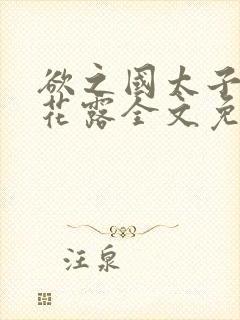 欲之國太子
花露全文免
汪泉